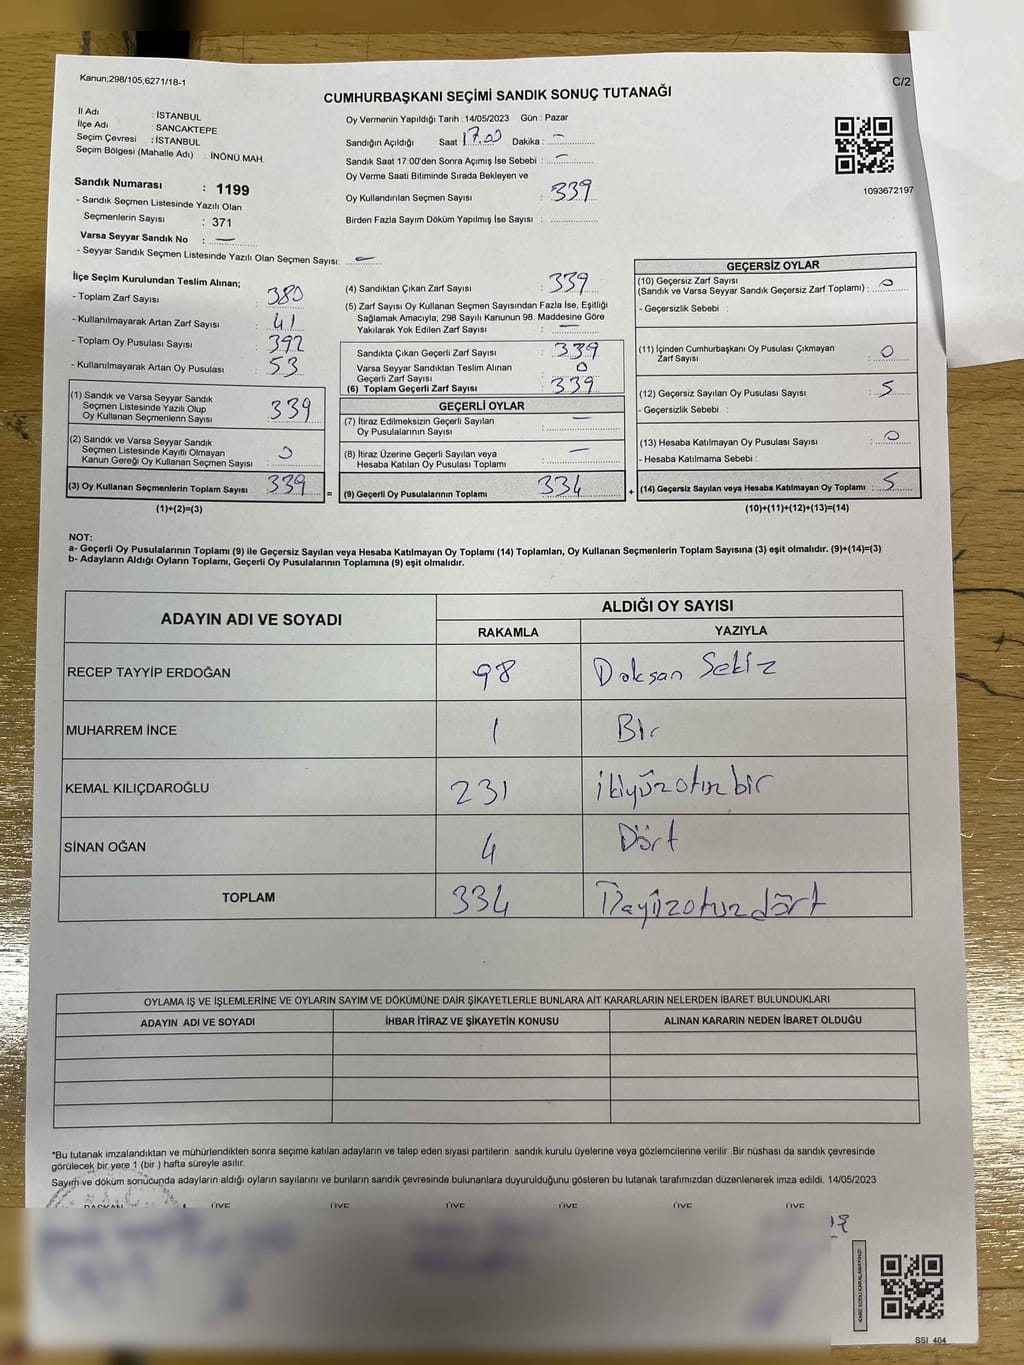 Kanun;298/105,6271/18-1
C/2
CUMHURBAŞKANI SEÇİMİ SANDIK SONUÇ TUTANAĞI
İl Adı : İSTANBUL
İlçe Adı : SANCAKTEPE
Seçim Çevresi : İSTANBUL
Seçim Bölgesi (Mahalle Adı) : İNÖNÜ MAH.
Sandık Numarası : 1199
- Sandık Seçmen Listesinde Yazılı Olan
Seçmenlerin Sayısı : 371
Varsa Seyyar Sandık No : —
- Seyyar Sandık Seçmen Listesinde Yazılı Olan Seçmen Sayısı: —
Oy Vermenin Yapıldığı Tarih :14/05/2023 Gün : Pazar
Sandığın Açıldığı Saat 17.00 Dakika : —
Sandık Saat 17:00'den Sonra Açımış İse Sebebi : —
Oy Verme Saati Bitiminde Sırada Bekleyen ve
Oy Kullandırılan Seçmen Sayısı : 339
Birden Fazla Sayım Döküm Yapılmış İse Sayısı :
1093672197
İlçe Seçim Kurulundan Teslim Alınan;
- Toplam Zarf Sayısı : 380
- Kullanılmayarak Artan Zarf Sayısı : 41
- Toplam Oy Pusulası Sayısı : 392
- Kullanılmayarak Artan Oy Pusulası : 53
(1) Sandık ve Varsa Seyyar Sandık
Seçmen Listesinde Yazılı Olup
Oy Kullanan Seçmenlerin Sayısı : 339
(2) Sandık ve Varsa Seyyar Sandık
Seçmen Listesinde Kayıtlı Olmayan
Kanun Gereği Oy Kullanan Seçmen Sayısı : 0
(3) Oy Kullanan Seçmenlerin Toplam Sayısı : 339
(1)+(2)=(3)
=
(4) Sandıktan Çıkan Zarf Sayısı : 339
(5) Zarf Sayısı Oy Kullanan Seçmen Sayısından Fazla İse, Eşitliği
Sağlamak Amacıyla; 298 Sayılı Kanunun 98. Maddesine Göre
Yakılarak Yok Edilen Zarf Sayısı : —
Sandıkta Çıkan Geçerli Zarf Sayısı : 339
Varsa Seyyar Sandıktan Teslim Alınan
Geçerli Zarf Sayısı : 0
(6) Toplam Geçerli Zarf Sayısı : 339
GEÇERLİ OYLAR
(7) İtiraz Edilmeksizin Geçerli Sayılan
Oy Pusulalarının Sayısı : —
(8) İtiraz Üzerine Geçerli Sayılan veya
Hesaba Katılan Oy Pusulası Toplamı : —
(9) Geçerli Oy Pusulalarının Toplamı : 334
+
GEÇERSİZ OYLAR
(10) Geçersiz Zarf Sayısı
(Sandık ve Varsa Seyyar Sandık Geçersiz Zarf Toplamı) : 0
- Geçersizlik Sebebi :
(11) İçinden Cumhurbaşkanı Oy Pusulası Çıkmayan
Zarf Sayısı : 0
(12) Geçersiz Sayılan Oy Pusulası Sayısı : 5
- Geçersizlik Sebebi :
(13) Hesaba Katılmayan Oy Pusulası Sayısı : 0
- Hesaba Katılmama Sebebi :
(14) Geçersiz Sayılan veya Hesaba Katılmayan Oy Toplamı : 5
(10)+(11)+(12)+(13)=(14)
NOT:
a- Geçerli Oy Pusulalarının Toplamı (9) ile Geçersiz Sayılan veya Hesaba Katılmayan Oy Toplamı (14) Toplamları, Oy Kullanan Seçmenlerin Toplam Sayısına (3) eşit olmalıdır. (9)+(14)=(3)
b- Adayların Aldığı Oyların Toplamı, Geçerli Oy Pusulalarının Toplamına (9) eşit olmalıdır.
ADAYIN ADI VE SOYADI
ALDIĞI OY SAYISI
RAKAMLA YAZIYLA
RECEP TAYYİP ERDOĞAN 98 Doksan Sekiz
MUHARREM İNCE 1 Bir
KEMAL KILIÇDAROĞLU 231 ikiyüzotuzbir
SİNAN OĞAN 4 Dört
TOPLAM 334
OYLAMA İŞ VE İŞLEMLERİNE VE OYLARIN SAYIM VE DÖKÜMÜNE DAİR ŞİKAYETLERLE BUNLARA AİT KARARLARIN NELERDEN İBARET BULUNDUKLARI
ADAYIN ADI VE SOYADI İHBAR İTİRAZ VE ŞİKAYETİN KONUSU ALINAN KARARIN NEDEN İBARET OLDUĞU
*Bu tutanak imzalandıktan ve mühürlendikten sonra seçime katılan adayların ve talep eden siyasi partilerin sandık kurulu üyelerine veya gözlemcilerine verilir .Bir nüshası da sandık çevresinde
görülecek bir yere 1 (bir ) hafta süreyle asılır.
Sayım ve döküm sonucunda adayların aldığı oyların sayılarını ve bunların sandık çevresinde bulunanlara duyurulduğunu gösteren bu tutanak tarafımızdan düzenlenerek imza edildi. 14/05/2023
BAŞKAN ÜYE ÜYE ÜYE ÜYE ÜYE ÜYE
KARE KODU KARALAMAYINIZ!
SSI_404